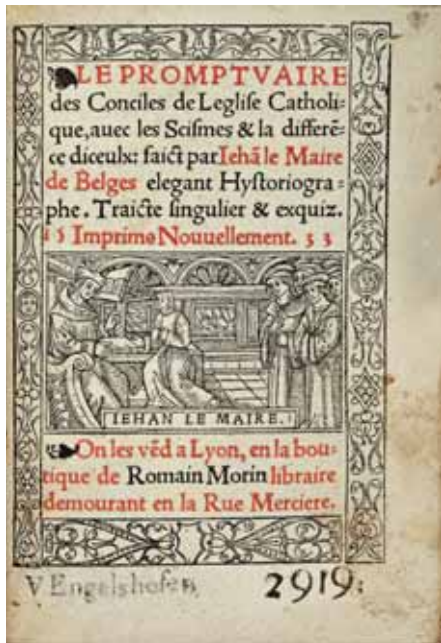 LE PROMPTVAIRE
des Conciles de Leglise Catholi-
que,auec les Scismes & la differē-
ce diceulx: faict par Iehā le Maire
de Belges elegant Hystoriogra-
phe. Traicte singulier & exquiz.
1 5 Imprime Nouuellement. 3 3
IEHAN LE MAIRE.
On les vēd a Lyon, en la bou-
tique de Romain Morin libraire
demourant en la Rue Merciere.
V Engelshofen 2919: